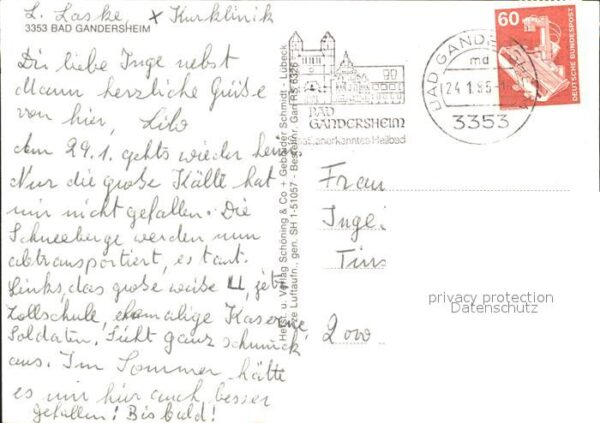 L. Laske, x Kurklinik
3353 BAD GANDERSHEIM
Dir liebe Inge nebst
Mann herzliche Grüße
von hier, Lilo
Am 29.1. gehts wieder heim
Nur die große Kälte hat
mir nicht gefallen. Die
Schneeberge werden nun
abtransportiert, es taut.
Links, das große weiße U, jetzt
Zollschule, ehemalige Kaserne,
Soldaten. Sieht ganz schmuck
aus. Im Sommer hätte
es mir hier auch besser
gefallen! Bis bald!
Herst. u. Verlag Schöning & Co + Gebrüder Schmidt · Lübeck
Luftaufn., gen. SH 1-51057 - Bestellnr. Gan RS 6326
BAD
GANDERSHEIM
anerkanntes Heilbad
BAD GANDERSHEIM
md
24.1.85-1
3353
60
DEUTSCHE BUNDESPOST
Frau
Inge
Tim
privacy protection
Datenschutz
2000